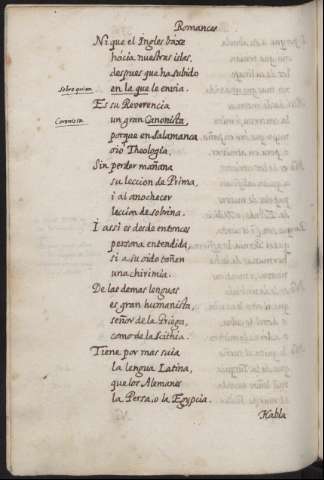 Romances
Ni que el Ingles baxe
hácia nuestras islas,
despues que ha subido
en la que le envia.
Sobre quien
Es su Reverencia
un gran Canonista,
Coronista
porque en Salamanca
oiò Theologia,
Sin perder mañana
su leccion de Prima,
i al anochecer
leccion de sobrina.
I assi es desde entonces
persona entendida,
si a su oido tañen
una chirimia.
De las demas lenguas
es gran humanista,
señor de la Griega,
como de la Scithia.
Tiene por mas suia
la lengua Latina,
que los Alemanes
la Persa, o la Egypcia.
Habla